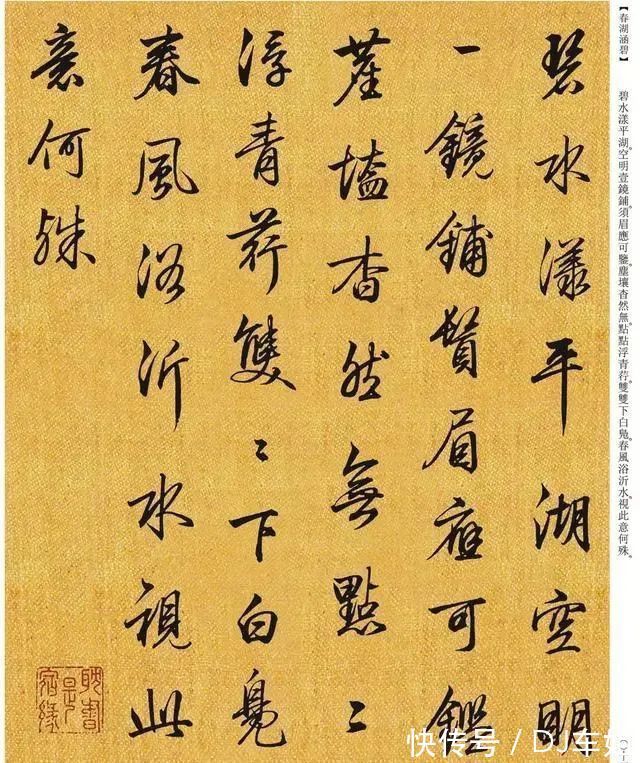 【春湖涵碧】 碧水漾平湖。空明壹鏡鋪。須眉應可鑒。塵壤杳然無。點點浮青荇。雙雙下白鳧。春風浴沂水。視此意何殊。
碧水漾平湖空明
一鏡鋪鬢眉應可鑑
塵壒杳然無點〻
浮青荇雙〻下白鳧
春風浴沂水視此
意何殊
耽書是宿緣
快传号 / DJ车